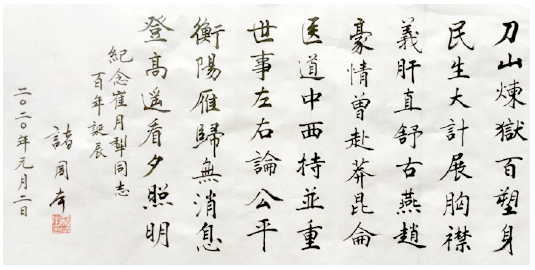 刀山煉獄百塑身
民生大計展胸襟
義肝直舒古燕趙
豪情曾赴莽昆侖
医道中西持並重
世事左右論公平
衡陽雁歸無消息
登高遥看夕照明
紀念崔月犁同志
百年誕辰
諸国本
二〇二〇年元月二日